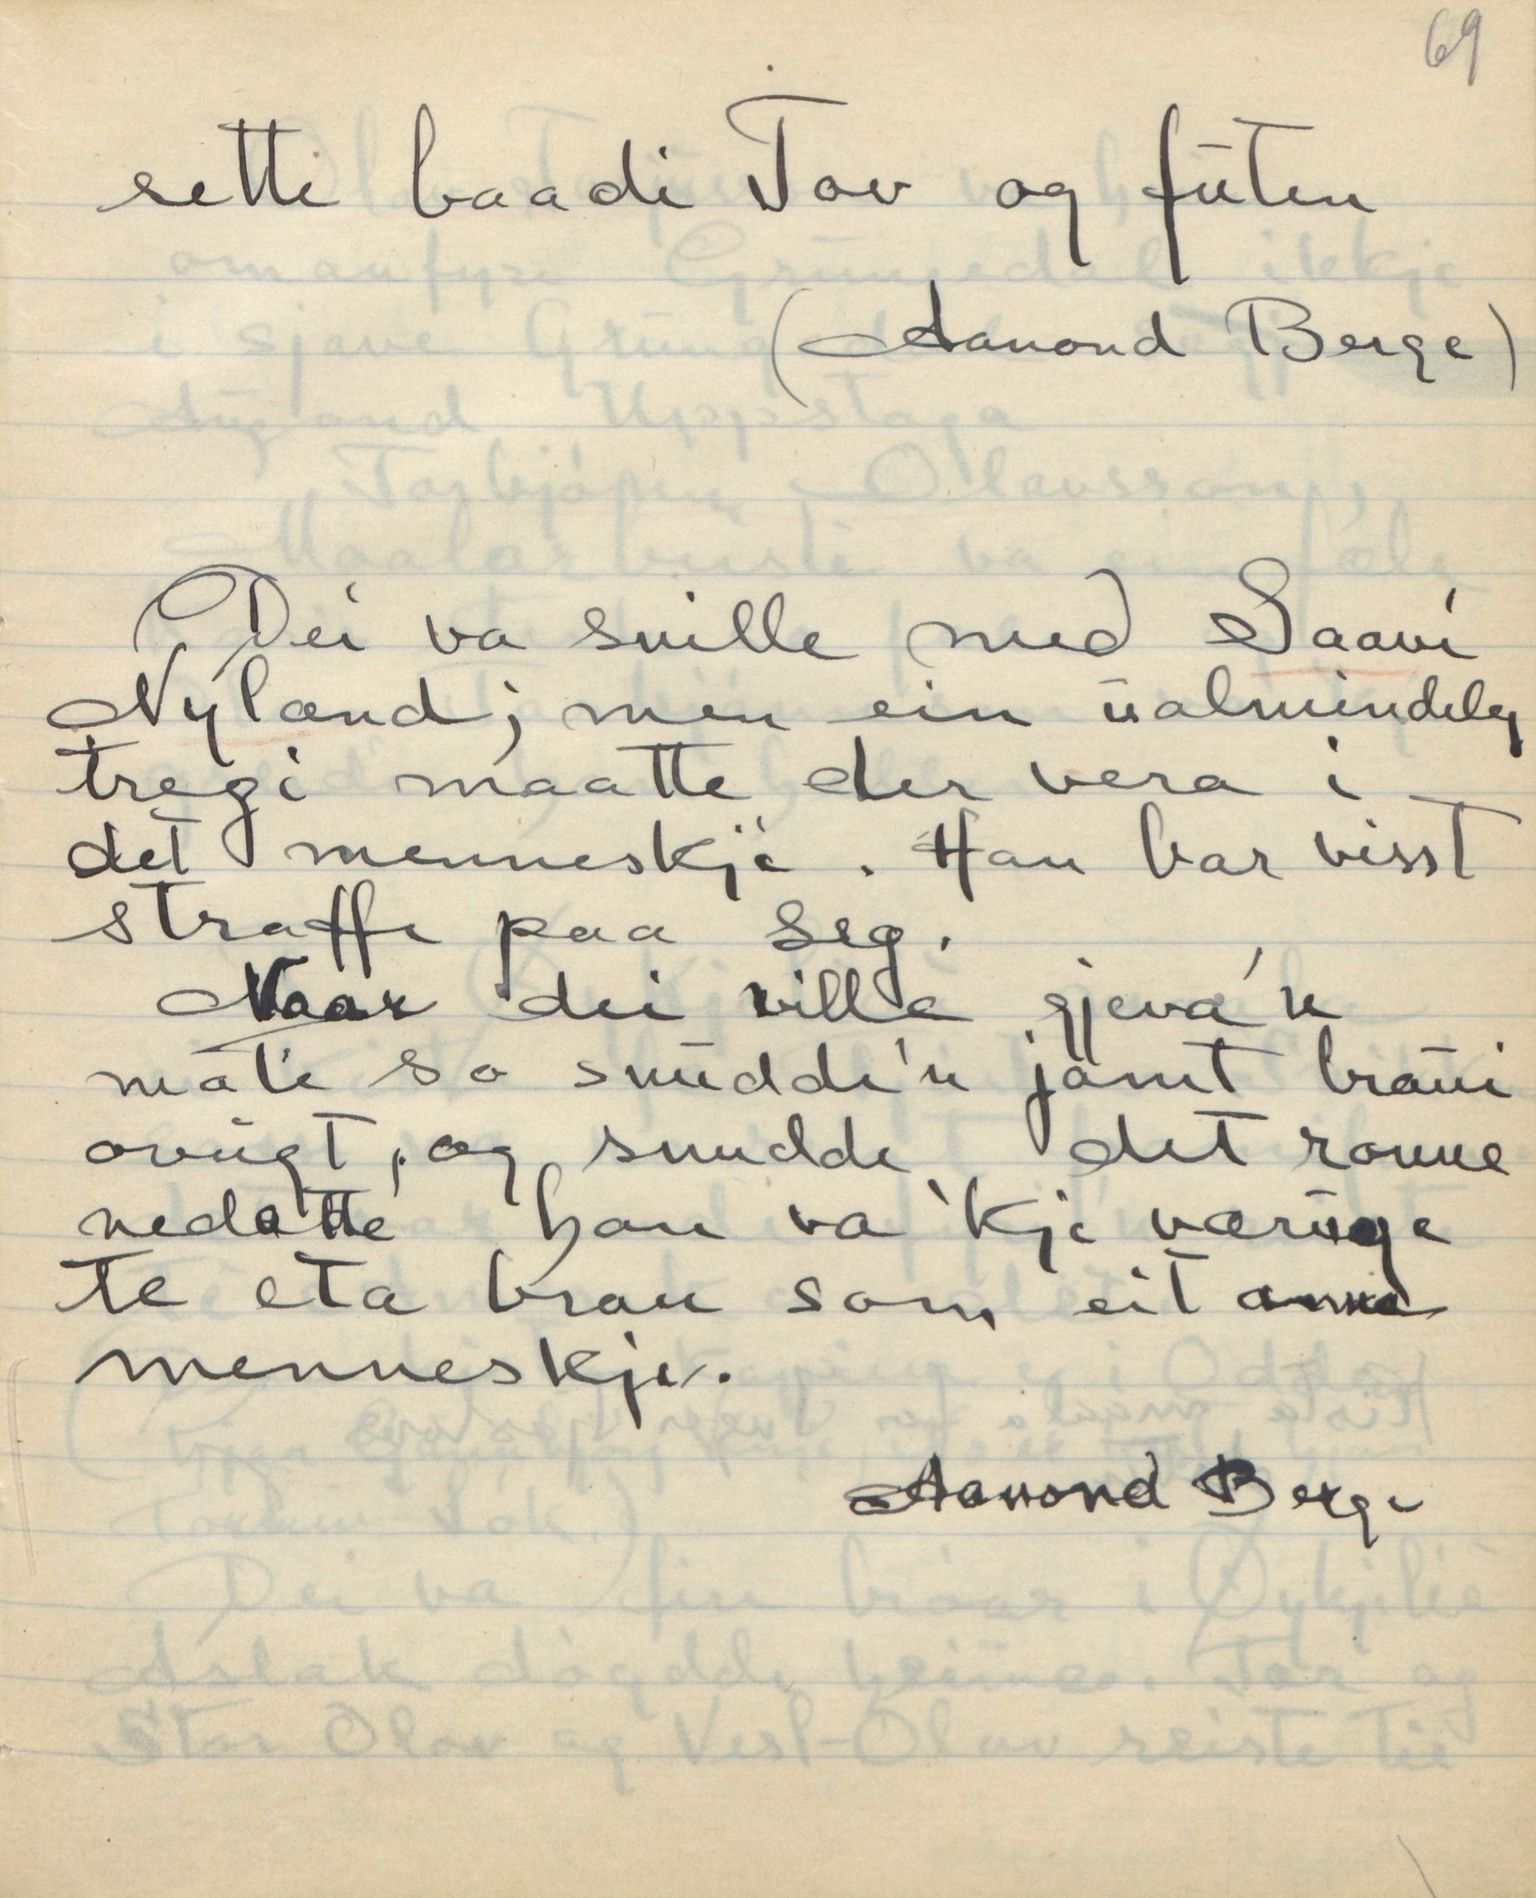 69
sette baadi Tov og fúten
(Aanond Berge)
Dei va snille med Saavi
Nyland; men ein úalmindeleg
tregi maatte der vera i
det menneskje. Han bar visst
straffe paa seg.
Naar dei ville gjeva'n
mat'e so snúdde'n jamt braúi
ovúgt, og snudde det ronne
nedatte han va 'kje værúge
te eta brau som eit anna
menneskje.
Aanond Berge